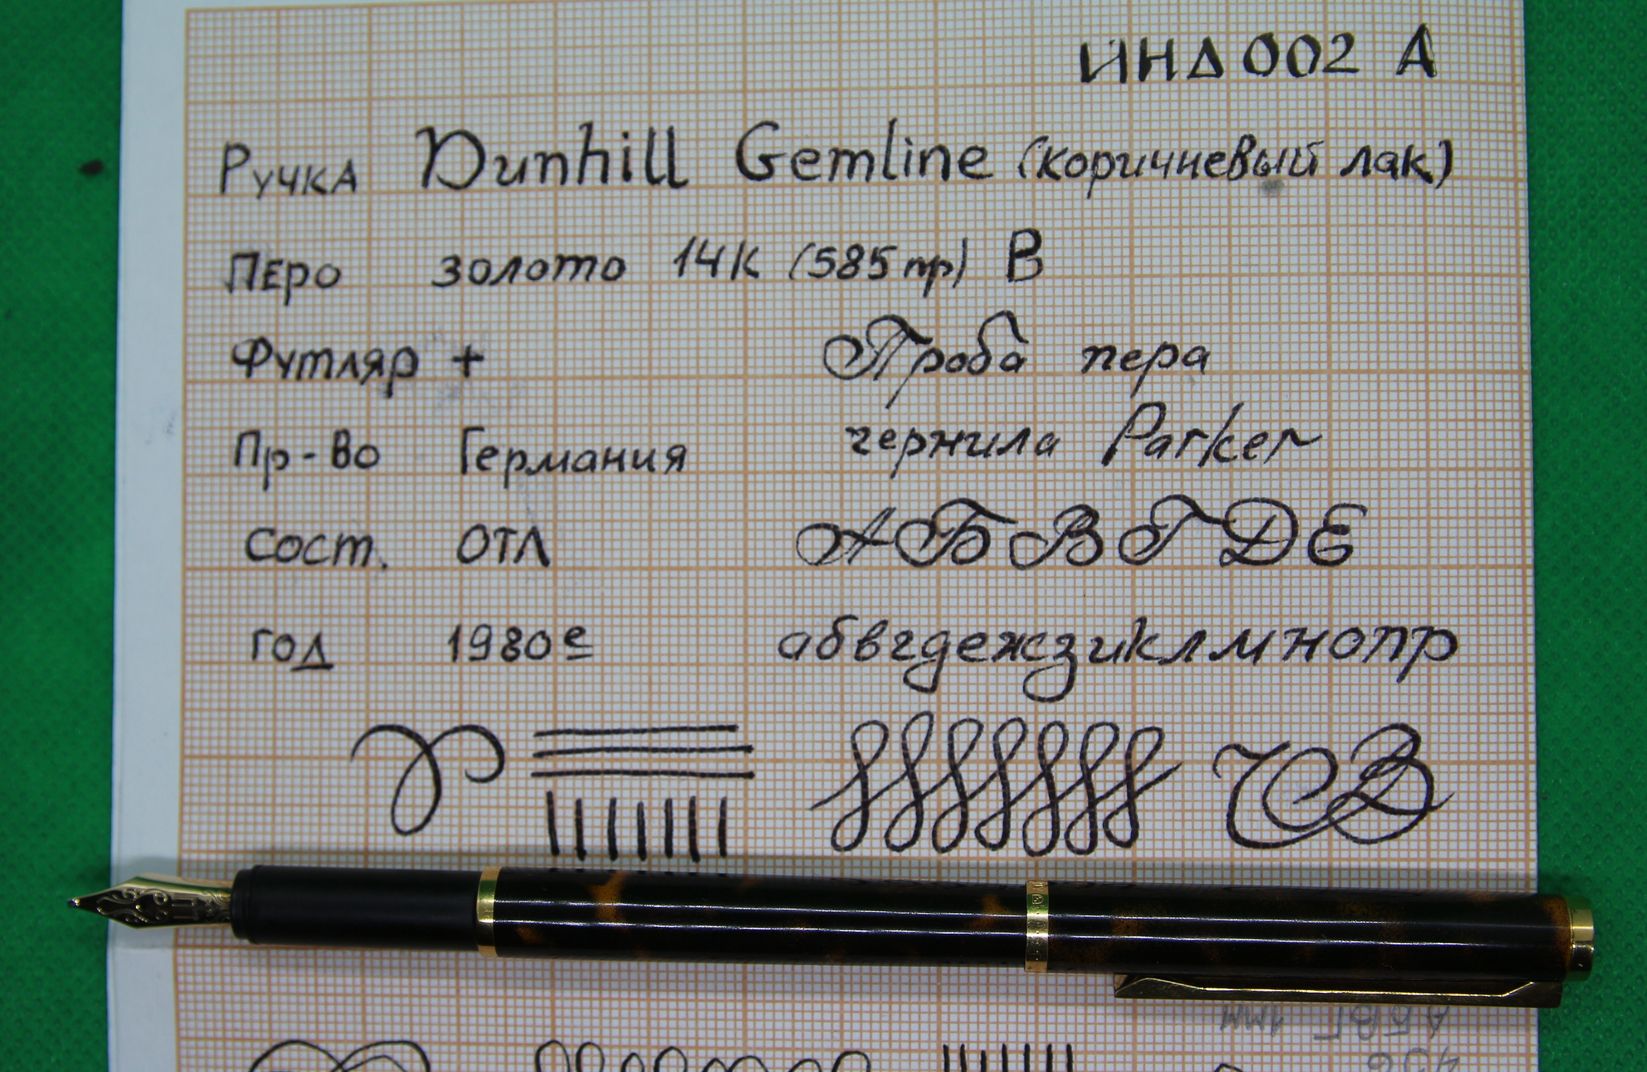 ИНД 002 А
Ручка Dunhill Gemline (коричневый лак)
Перо золото 14К (585 пр) В
Футляр + Проба пера
Пр-во Германия чернила Parker
Сост. ОТЛ А Б В Г Д Е
год 1980е абвгдежзиклмнопр
АБВГ 1мм